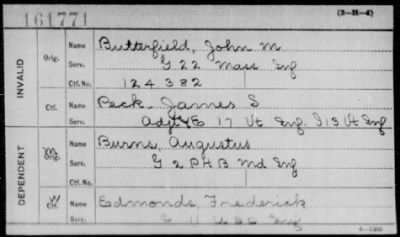 161771 (3-H-4)
INVALID
Orig. Name Butterfield, John M
Serv. G. 22 Mass Inf
Ctf. No. 124382
Ctf. Name Peck James S
Serv. Adjt & E 17 Vt Inf. I 13 Vt Inf
DEPENDENT
M Orig. Name Burns, Augustus
Serv. G 2 P H B Md Inf
Ctf. No.
W Ctf. Name Edmonds, Frederick
Serv. Inf